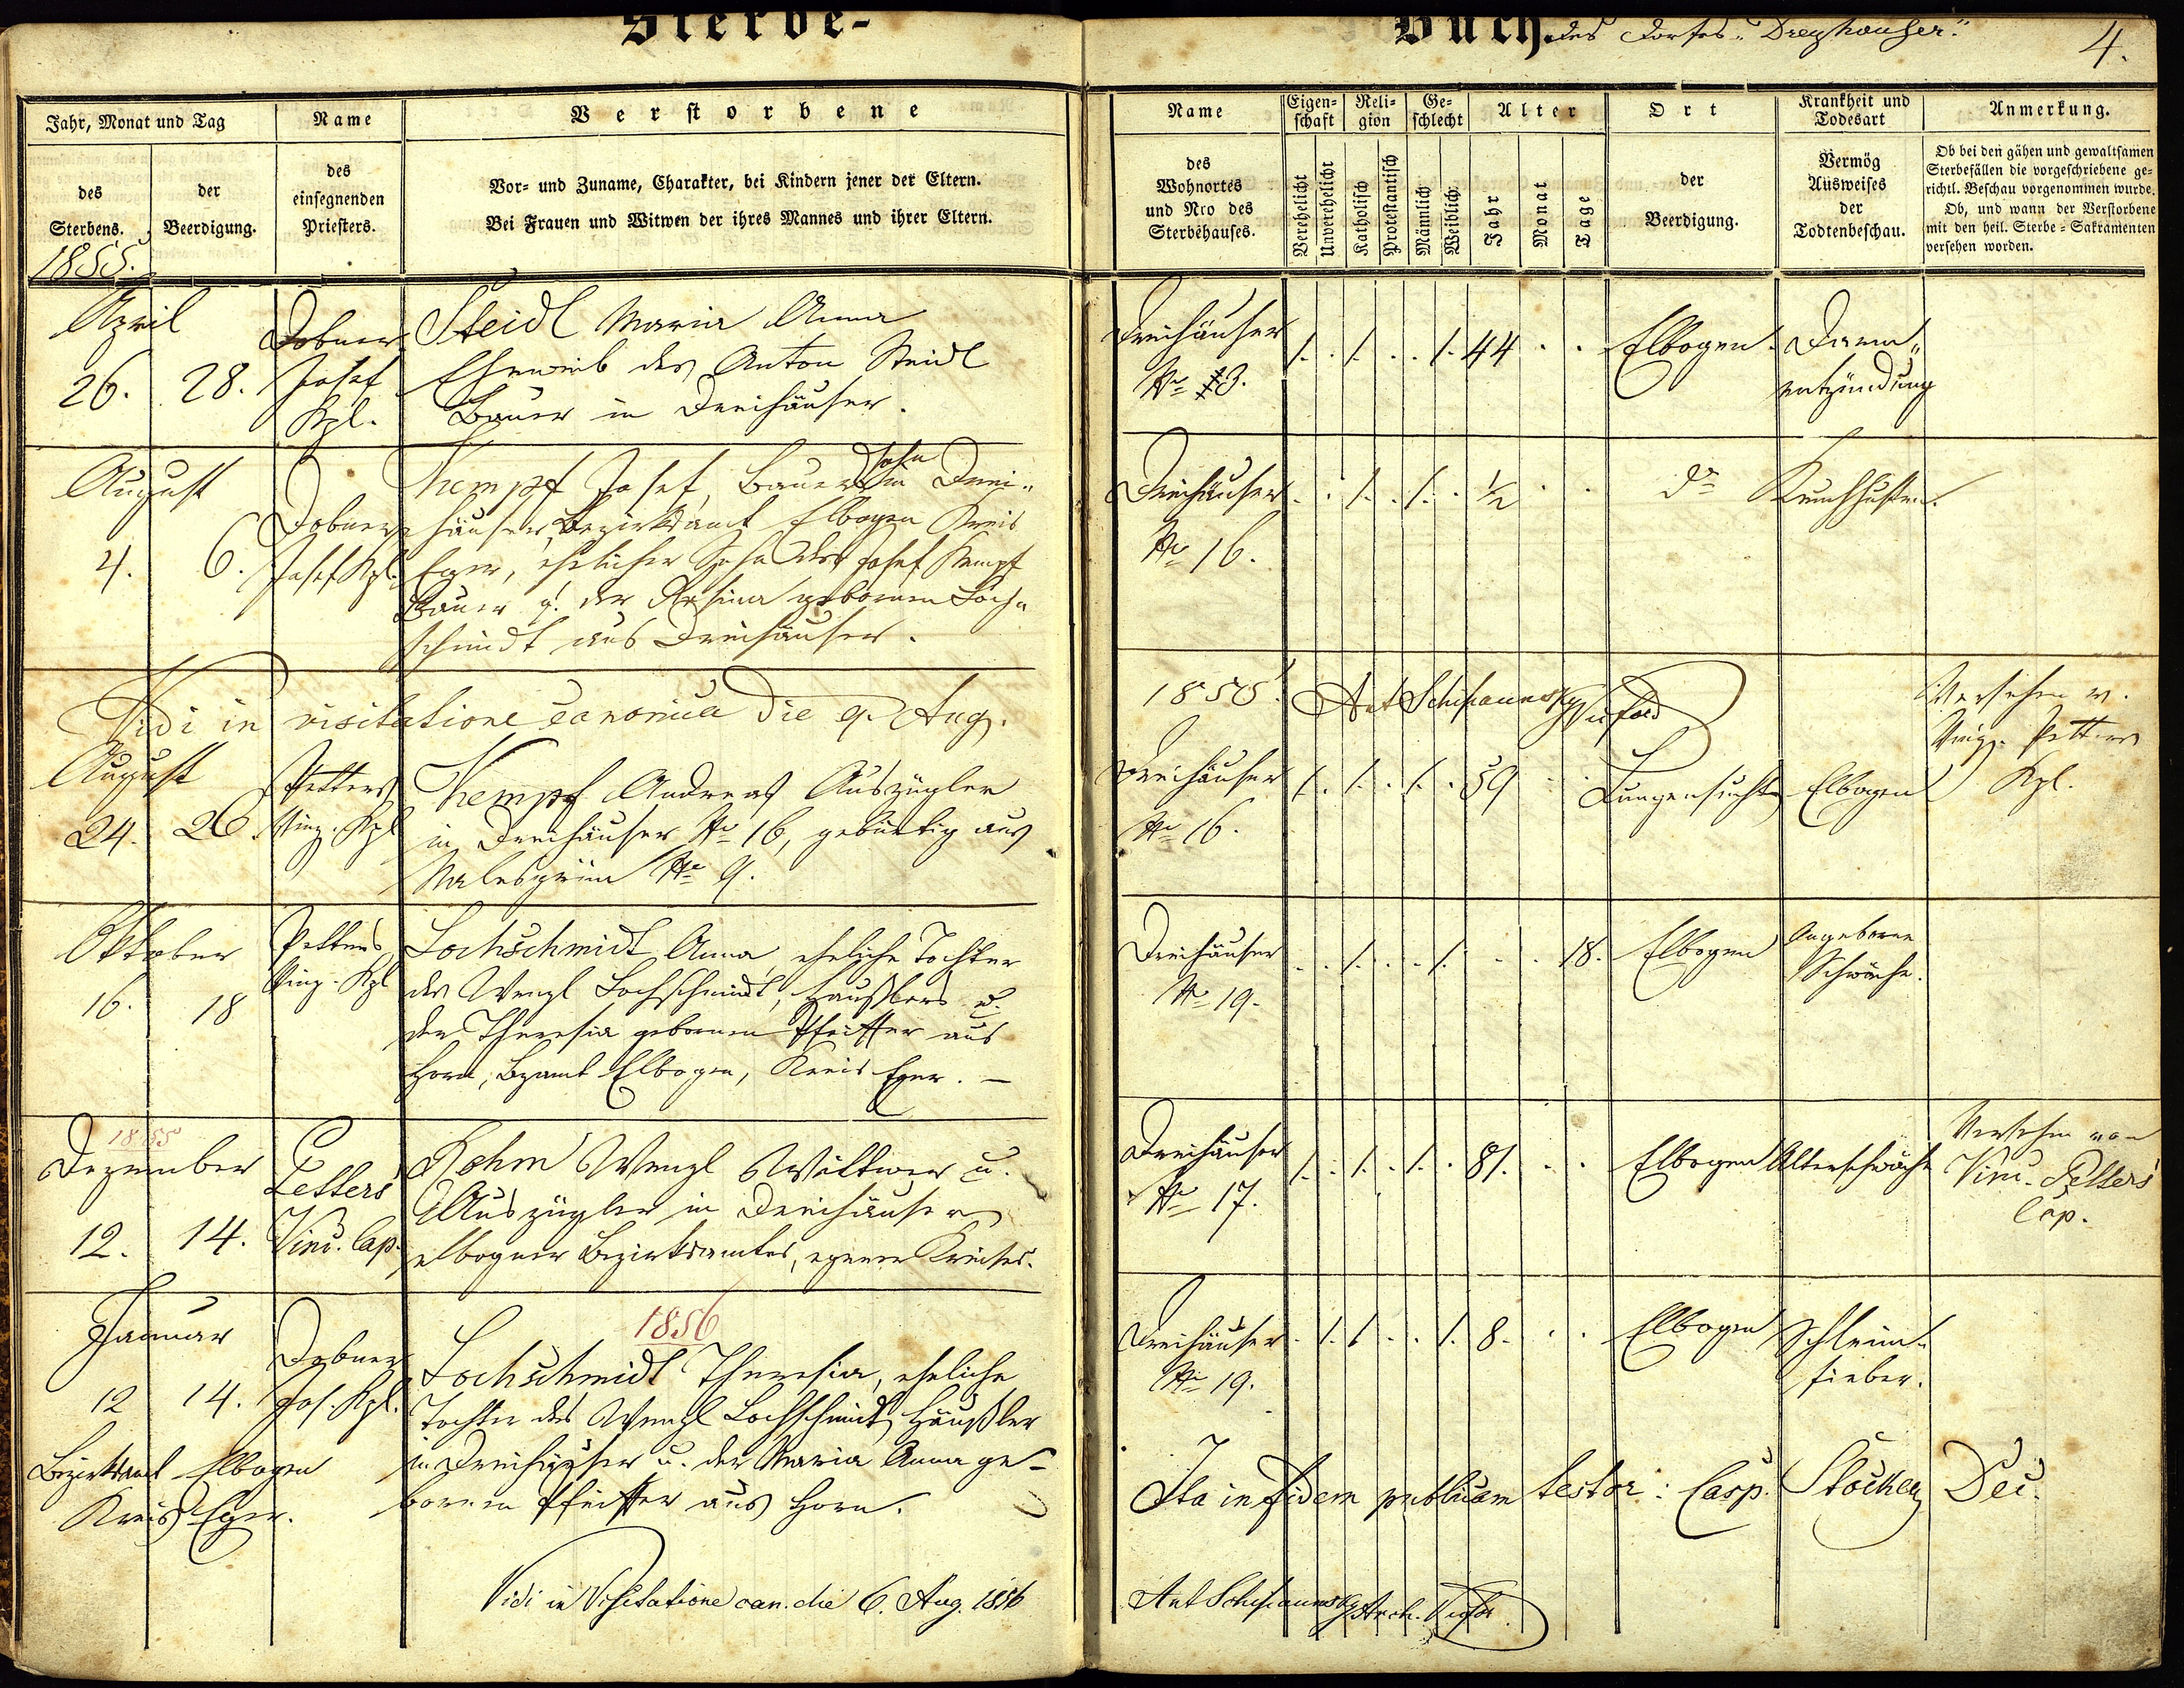 Sterbe-
Buch. des Dorfes „Dreyhäuser."
4.
Jahr, Monat und Tag
des Sterbens.
der Beerdigung.
Name
des einsegnenden Priesters.
Verstorbene
Vor- und Zuname, Charakter, bei Kindern jener der Eltern.
Bei Frauen und Witwen der ihres Mannes und ihrer Eltern.
Name
des Wohnortes und Nro des Sterbehauses.
Eigenschaft
Verehelicht
Unverehelicht
Religion
Katholisch
Protestantisch
Geschlecht
Männlich
Weiblich
Alter
Jahr
Monat
Tage
Ort
der Beerdigung.
Krankheit und Todesart
Vermög Ausweises der Todtenbeschau.
Anmerkung.
Ob bei den gähen und gewaltsamen
Sterbefällen die vorgeschriebene ge-
richtl. Beschau vorgenommen wurde.
Ob, und wann der Verstorbene
mit den heil. Sterbe-Sakramenten
versehen worden.
1855.
April
26. 28.
Dobner
Josef
Kpl.
Steidl Maria Anna
Eheweib des Anton Steidl
Bauer in Dreihäuser.
Dreihäuser
No 3.
1. . 1. . . 1. 44 . .
Elbogen.
Darm„
entzündung
August
4. 6.
Dobner
Josef Kpl.
Kempf Josef, Bauerssohn in Drei„
häuser, Bezirksamt Elbogen Kreis
Eger, ehelicher Sohn des Josef Kempf
Bauer u. der Rosina gebornen Loch„
schmidt aus Dreihäuser.
Dreihäuser
No 16.
. . 1. . 1. . ½ . .
do
Keuchhusten.
Vidi in visitatione canonica die 9. Aug.
1855. Ant
August
24. 26.
Petters
Vinz. Kpl
Kempf Andreas Auszügler
in Dreihäuser No 16, gebürtig aus
No 9.
Dreihäuser
No 16.
1. . 1. . 1. . 59 . .
Lungensucht
Elbogen
Versehen v.
Vinz. Petters
Kpl.
Oktober
16. 18
Petters
Vinz. Kpl
Lochschmidt Anna, eheliche Tochter
des Wenzl Lochschmidt, Häußlers u.
der Theresia gebornen Pfeiffer aus
Horn, Bzamt Elbogen, Kreis Eger. —
Dreihäuser
No 19.
. . 1. . . 1. . . 18.
Elbogen
Angeborne
Schwäche.
1855
Dezember
12. 14.
Petters
Vinc. Cap.
Rohm Wenzl Wittwer u.
Auszügler in Dreihäuser
elbogner Bezirksamtes, egerer Kreises.
Dreihäuser
No 17.
1. . 1. . 1. . 81. . .
Elbogen
Altersschwäche
Versehen von
Vinc. Petters
Cap.
1856
Januar
12 14.
Dobner
Jos. Kpl.
Bezirksamt Elbogen
Kreis Eger.
Lochschmidt Theresia, eheliche
Tochter des Wenzl Lochschmidt, Häußler
in Dreihäuser u. der Maria Anna ge-
bornen Pfeiffer aus Horn.
Dreihäuser
No 19.
. 1. 1 . . 1. 8. . .
Elbogen
Schleim-
fieber.
Ita in fidem publicam testor: Casp. Stöcker Dec.
Vidi in Visitatione can. die 6. Aug. 1856
Ant